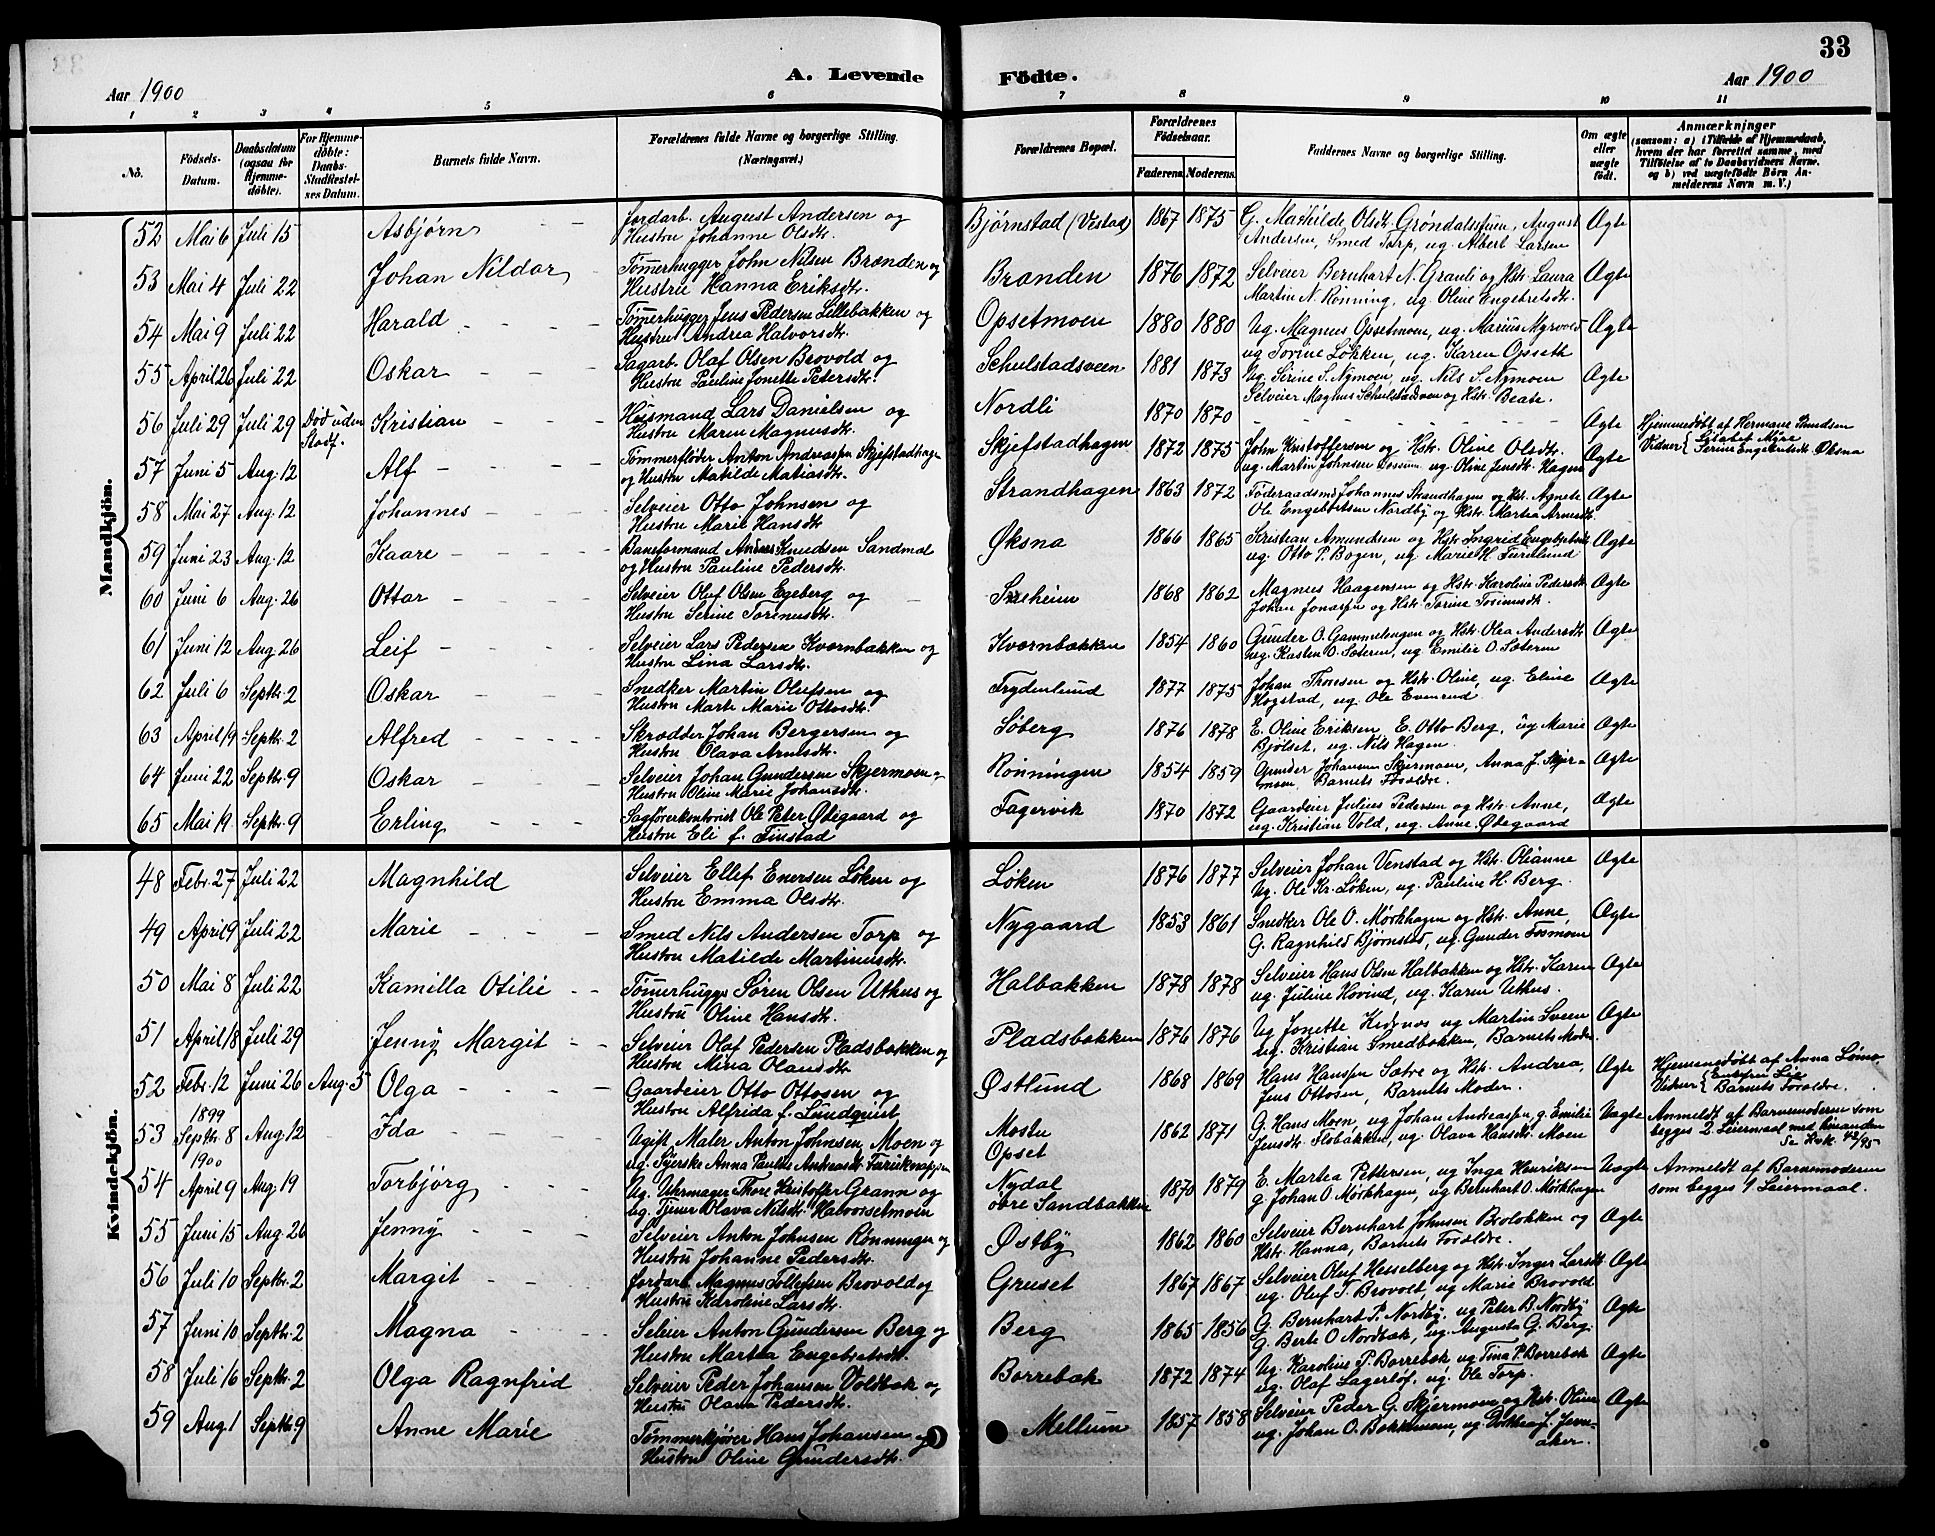 33
A. Levende Födte.
Aar 1900
Aar 1900
1 2 3 4 5 6 7 8 9 10 11
Nò. Födsels-Datum. Daabsdatum (ogsaa for Hjemme-döbte). For Hjemme-döbte: Daabs-Stadfæstelses Datum. Barnets fulde Navn. Forældrenes fulde Navne og borgerlige Stilling. (Næringsvei.) Forældrenes Bopæl. Forældrenes Födselsaar. Faderens. Moderens. Faddernes Navne og borgerlige Stilling. Om ægte eller uægte födt. Anmærkninger (saasom: a) i Tilfælde af Hjemmedaab, hvem der har forrettet samme, med Tilföielse af to Daabsvidners Navne. og b) ved uægtefödte Börn Anmelderens Navn m. V.)
Mandkjön.
52 Mai 6 Juli 15 Asbjørn Jordarb. August Andersen og Bjørnstad (Vestad) 1867 1875 G. Mathilde Olsdt. Grøndalsstuen, August Ægte
Hustru Johanne Olsdt. Andersen, Smed Torp, ug. Albert Larsen
53 Mai 4 Juli 22 Johan Nildor Tømerhugger John Nilsen Brænden og Brænden 1876 1872 Selveier Bernhart N. Grauli og Hst. Laura Ægte
Hustru Hanna Eriksdt. Martin N. Rønning, ug. Oline Engebretsdt.
54 Mai 9 Juli 22 Harald Tømerhugger Jens Pedersen Lillebakken og Opsetmoen 1880 1880 Ug. Magnus Opsetmoen, ug. Marius Myrvold Ægte
Hustru Andrea Halvorsdt. ug Torine Løkken, ug. Karen Opseth
55 April 26 Juli 22 Oskar Sagarb. Olaf Olsen Brovold og Schulstadsveen 1881 1873 Ug. Serine S. Nymoen, ug. Nils S. Nymoen Ægte
Hustru Pauline Jonette Petersdt. Selveier Magnus Schulstadsveen og Hst. Beate.
56 Juli 29 Juli 29 Død uden Stadf. Kristian Husmand Lars Danielsen og Nordli 1870 1870 Ægte Hjemmedøbt af Hermane Knudsen
Hustru Maren Magnusdt. Vidner Lisabet Myre Serine Engebretsdt. Øksna
57 Juni 5 Aug. 12 Alf Tømmerfløder Anton Andreasen Skjefstadhagen Skjefstadhagen 1872 1875 John Kristoffersen og Hst. Oline Olsdt. Ægte
og Hustru Matilde Matiasdt. ug. Martin Johnsen ug. Oline Jensdt. Hagen
58 Mai 27 Aug. 12 Johannes Selveier Otto Johnsen og Strandhagen 1863 1872 Føderaadsmd Johannes Strandhagen og Hst. Agnete Ægte
Hustru Marie Hansdt. Ole Engebretsen Nordby og Hst. Martea Arnesdt.
59 Juni 23 Aug. 12 Kaare Baneformand Anders Knudsen Sandmæl Øksna 1866 1865 Kristian Amundsen og Hst. Ingrid Engebretsdt. Ægte
og Hustru Pauline Pedersdt. ug. Otto P. Bogen, ug Marie H. Furulund
60 Juni 6 Aug. 26 Ottar Selveier Olaf Olsen Egeberg og 1868 1862 Magnus Haagensen og Hst. Karoline Pedersdt. Ægte
Hustru Serine Torenusdt. Johan Jonassen og Hst. Torine
61 Juni 12 Aug. 26 Leif Selveier Lars Pedersen Kværnbakken og Kværnbakken 1854 1860 Gunder O. Gammelengen og Hst. Olea Andersdt. Ægte
Hustru Lina Larsdt. ug. Kasten O. Sæteren, ug Emilie O. Sæteren
62 Juli 6 Septbr. 2 Oskar Snedker Martin Olufsen og Frydenlund 1877 1875 Johan Thonsen og Hst. Oline, ug. Eline Ægte
Hustru Marte Marie Ottosdt. Hogstad, ug. Ole Evenrud
63 April 19 Septbr. 2 Alfred Skrædder Johan Bergersen og Søberg 1876 1878 E. Oline Eriksen, E. Otto Berg, ug Marie Ægte
Hustru Olava Arnesdt. Bjølset, ug. Nils Hagen.
64 Juni 22 Septbr. 9 Oskar Selveier Johan Gundersen Skjærmoen og Rønningen 1854 1859 Gunder Johansen Skjærmoen, Anna J. Skjær- Ægte
Hustru Oline Marie Johansdt. moen, Barnets Forældre.
65 Mai 19 Septbr. 9 Erling Sagførerkontorist Ole Peter Ødegaard og Fagervik 1870 1872 Gaardeier Julius Pedersen og Hst. Anne, Ægte
Hustru Eli f. Finstad ug. Kristian Vold, ug. Anne Ødegaard
Kvindekjön.
48 Febr. 27 Juli 22 Magnhild Selveier Ellef Enersen Løken og Løken 1876 1877 Selveier Johan Venstad og Hst. Olianne Ægte
Hustru Emma Olsdt. Ug. Ole Kr. Løken, ug. Pauline H. Berg.
49 April 9 Juli 22 Marie Smed Nils Andersen Torp og Nygaard 1853 1861 Snedker Ole O. Mørkhagen og Hst. Anne, Ægte
Hustru Matilde Martinusdt. G. Ragnhild Bjørnstad, ug. Gunder Fosmoen
50 Mai 8 Juli 22 Kamilla Otilie Tømerhugger Søren Olsen Uthus og Halbakken 1878 1878 Selveier Hans Olsen Halbakken og Hst. Karen Ægte
Hustru Oline Hansdt. ug. Juline Hovind, ug. Karen Uthus.
51 April 18 Juli 29 Jenny Margit Selveier Olaf Pedersen Pladsbakken og Pladsbakken 1876 1876 Ug Jonette ug Martin Sveen Ægte
Hustru Mina Olausdt. ug. Kristian Smedbakken, Barnets Moder
52 Febr. 12 Juni 26 Aug. 5 Olga Gaardeier Otto Ottosen Østlund 1868 1869 Hans Hansen Sætre og Hst. Andrea, Ægte Hjemmedøbt af Anna Lømo,
Hustru Alfrida f. Lundquist Jens Ottosen, Barnets Moder. Vidner Engfrin Lie Barnets Forældre.
53 1899 Septbr. 8 Aug. 12 Ida Ugift Maler Anton Johnsen Moen og Mostu 1862 1871 G. Hans Moen, ug Johan Andreassen, g. Emilie Uægte Anmeldt af Barnemoderen som
ug. Syerske Anna Pauline Andreasdt. Opset Jensdt. Slobakken, ug. Olava Hansdt. Moen begges 2. Leiermaal med hinanden Se Kvk. 42/95
54 1900 April 9 Aug. 19 Torbjørg Ug. Uhrmager Thore Kristoffer Grann og Nydal 1870 1879 E. Martea Pettersen, ug Inga Henriksen Uægte Anmeldt af Barnemoderen
ug. Tjener Olava Nilsdt. Halvorsetmoen øvre Sandbakken g. Johan O. Mørkhagen, ug Bernhart O. Mørkhagen som begges 1 Leiermaal.
55 Juni 15 Aug. 26 Jenny Selveier Anton Johnsen Rønningen og Østby 1862 1860 Selveier Bernhart Johnsen Brolokken og Ægte
Hustru Johanne Pedersdt. Hst. Hanna, Barnets Forældre.
56 Juli 10 Septbr. 2 Margit Jordarb. Magnus Tollefsen Brovold og Gruset 1867 1867 Selveier Oluf Hesselberg og Hst. Inger Larsdt. Ægte
Hustru Karoline Larsdt. ug. Oluf T. Brovolt, ug Marie Brovold
57 Juni 10 Septbr. 2 Magna Seleier Anton Gundersen Berg og Berg 1865 1856 G. Bernhart P. Nordby, ug Peter B. Nordby Ægte
Hustru Martea Engebretsdt. G. Berte O Nordbæk, ug. Augusta G. Berg.
58 Juli 16 Septbr. 2 Olga Ragnfrid Selveier Peder Johansen Voldbæk og Borrebæk 1872 1874 Ug Karoline P. Borrebæk, ug Tina P. Borrebæk Ægte
Hustru Olava Pedersdt. ug. Olaf Lagerløf, ug. Ole Torp.
59 Aug. 1 Septbr. 9 Anne Marie Tømmerkjører Hans Johansen og Mellum 1857 1858 Selveier Peder G. Skjermoen og Hst. Oline Ægte
Hustru Oline Gundersdt. ug. Johan O. Bekkemoen, ug Dorthea J. Jevn-
aker.